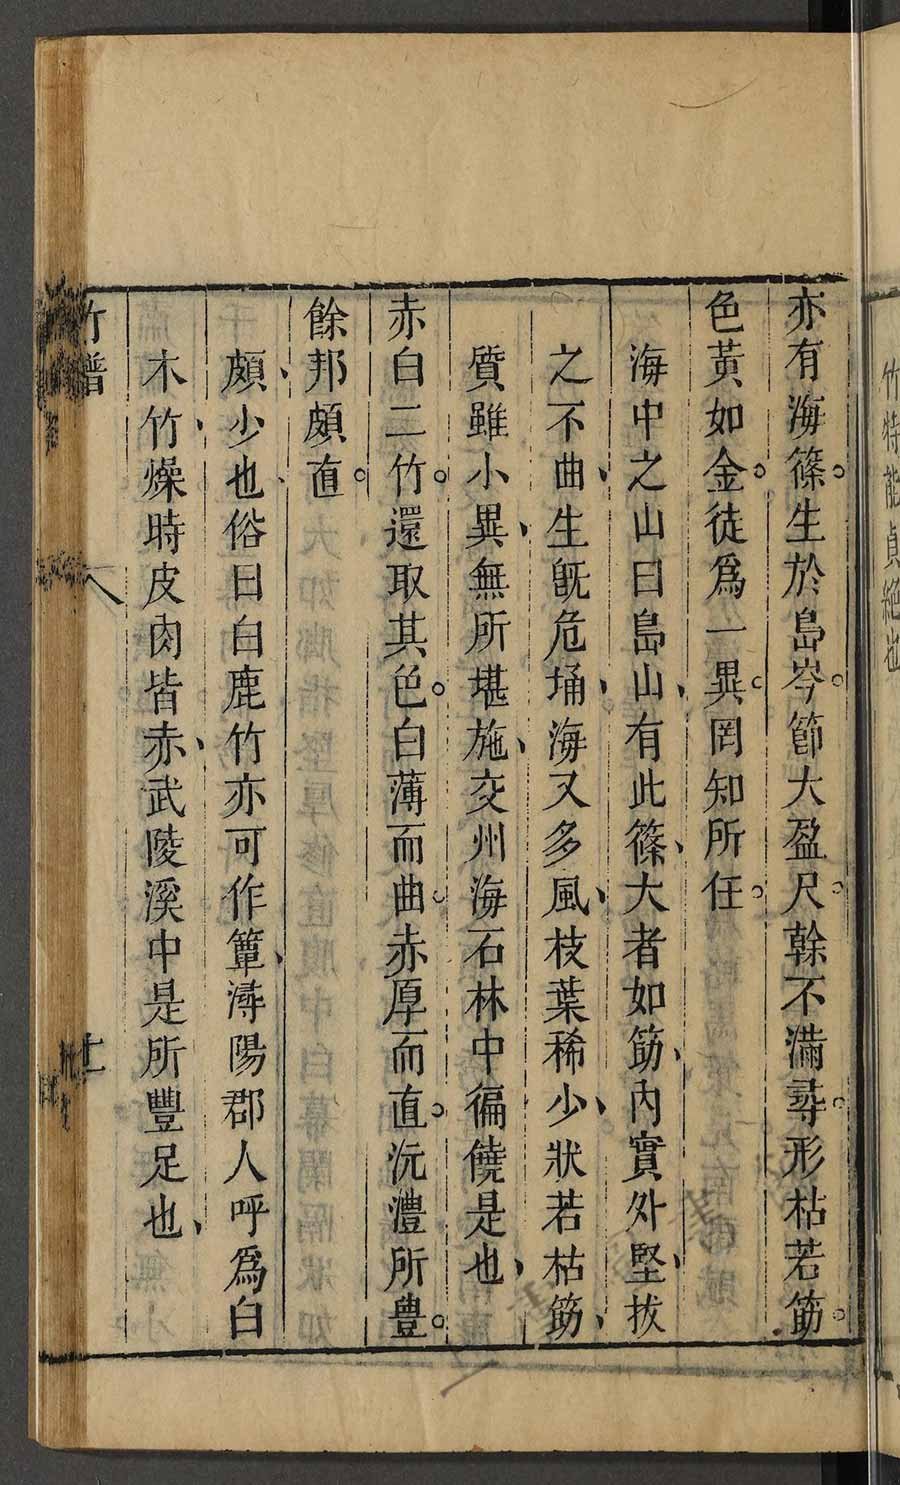 竹特能貞絕也
亦有海篠。生於島岑。節大盈尺。幹不滿尋。形枯若筯。
色黃如金。徒為一異。罔知所任。
海中之山曰島山、有此篠、大者如筯、內實外堅、拔
之不曲、生既危埇、海又多風、枝葉稀少、狀若枯筯、
質雖小異、無所堪施、交州海石林中徧饒是也、
赤白二竹。還取其色。白薄而曲。赤厚而直。沅澧所豊。
餘邦頗直。
頗、少也、俗曰白鹿竹亦可作簟、潯陽郡人呼為白
木竹、燥時皮肉皆赤、武陵溪中是所豐足也、
竹譜
八